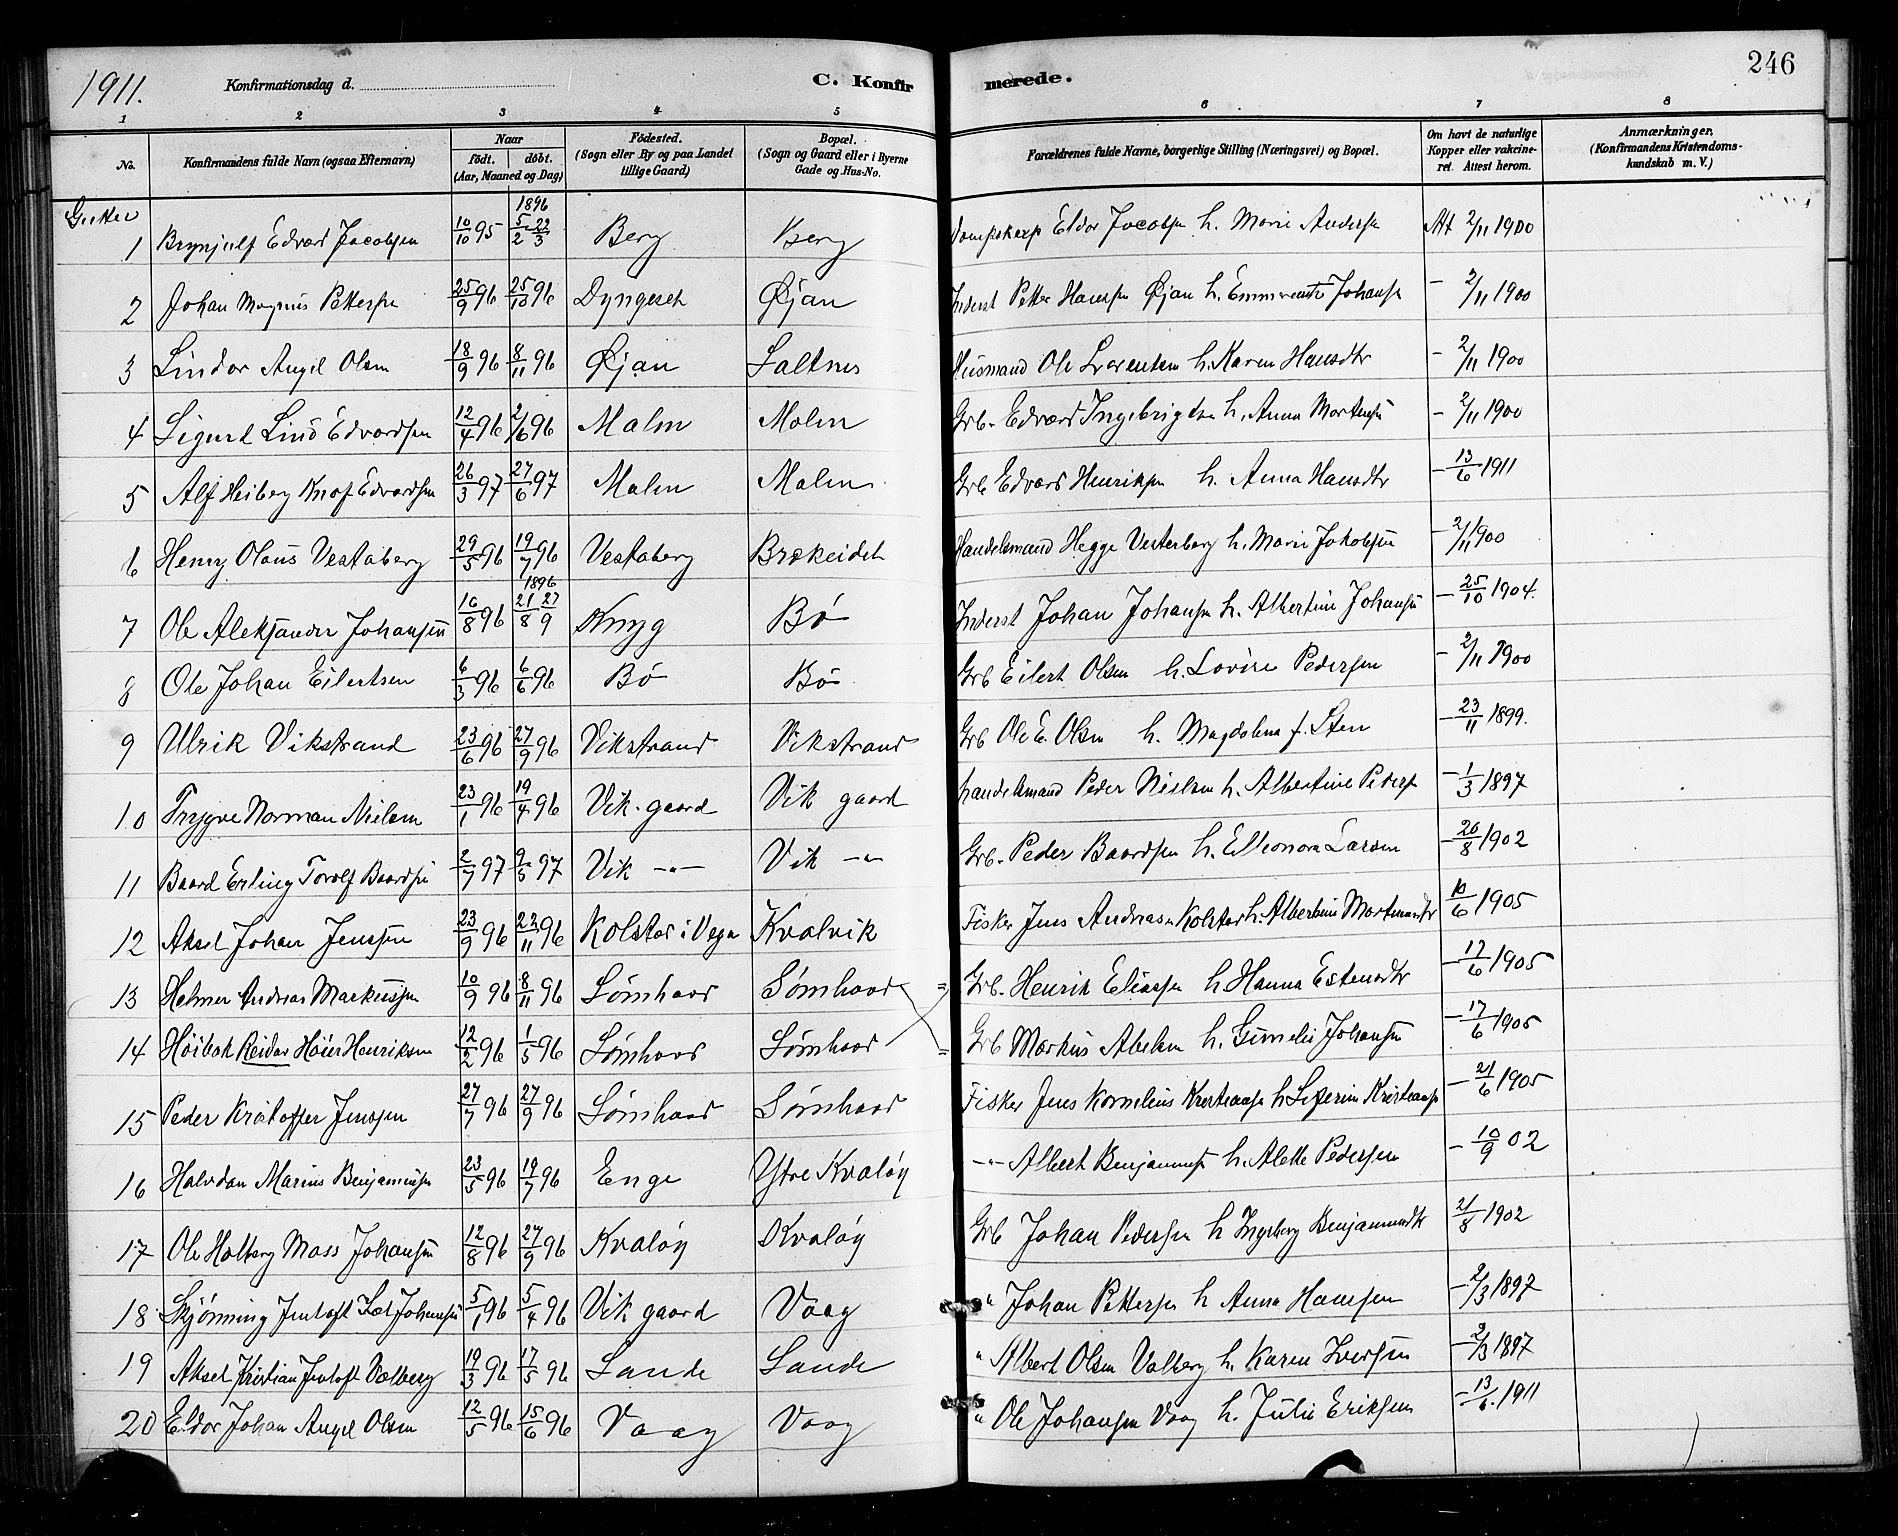 1911.
Konfirmationsdag d.
C. Konfirmerede.
246
1 2 3 4 5 6 7 8
No.
Konfirmandens fulde Navn (ogsaa Efternavn)
Naar
födt. döbt.
(Aar, Maaned og Dag)
Födested.
(Sogn eller By og paa Landet
tillige Gaard)
Bopæl.
(Sogn og Gaard eller i Byerne
Gade og Hus-No.
Forældrenes fulde Navne, borgerlige Stilling (Næringsvei) og Bopæl.
Om havt de naturlige
Kopper eller vakcine-
ret. Attest herom.
Anmærkninger,
(Konfirmandens Kristendoms-
kundskab m. V.)
Gutter
1 Brynjulf Edvard Jacobsen 10/10 95 1896 5/2 22/3 Berg Berg Eldor Jacobsen h. Marie Andersn Att 2/11 1900
2 Johan Magnus Pettersn 25/9 96 25/10 96 Dyngeset Øjan Inderst Petter Hansen Øjan h. Johansn - 2/11 1900
3 Lindor Angel Olsen 18/9 96 8/11 96 Øjan Saltnes Husmand Ole Lorentsen h. Karen Hansdtr - 2/11 1900
4 Sigurd Lind Edvardsen 12/4 96 2/6 96 Malm Malm Grb. Edvard Ingebrigtsen h. Anna Mortensn - 2/11 1900
5 Alf Heiberg Knof Edvardsen 26/3 97 27/6 97 Malm Malm Grb Edvard Henriksen h. Anna Hansdtr - 13/6 1911
6 Henry Olaus Vestaberg 29/5 96 19/7 96 Vestaberg Brækeidet Handelsmand Hegge Vesterberg h. Marie Jakobsen - 2/11 1900
7 Ole Aleksander Johansen 16/8 96 1896 21/8 27/9 Knyg Bø Inderst Johan Johansn h. Albertine Johansen - 25/10 1904.
8 Ole Johan Eilertsen 6/3 96 6/6 96 Bø Bø Grb Eilert Olsen h. Lovise Pedersen - 2/11 1900
9 Ulrik Vikstrand 23/6 96 27/9 96 Vikstrand Vikstrand Grb Ole E. Olsen h. Magdalena f. Sten - 23/11 1899.
10 Trygve Norman Nielsen 23/1 96 19/4 96 Vik. gaard Vik gaard handelsmand Peder Nielsen h. Albertine Pedersn - 1/3 1897
11 Baard Erling Torolf Baardsen 2/7 97 9/5 97 Vik -"- Vik -"- Grb. Peder Baardsen h. Elleonora Larsen - 26/8 1902
12 Aksel Johan Jenssen 23/9 96 22/11 96 Kolstad i Vega Kvalvik Fisker Jens Andreasn Kolstad h. Albertine Mortensdtr 10/6 1905
13 Helmer Andreas Markussen 10/9 96 8/11 96 Sømhaar Sømhaar = Grb. Henrik Eliassen h Hanna Estensdtr - 17/6 1905
14 Höibak Reidar Höier Henriksen 12/2 96 1/5 96 Sømhaar Sømhaar = Grb Markus Abelsen h. Gunelie Johansen - 17/6 1905
15 Peder Kristoffer Jenssen 27/7 96 27/9 96 Sømhaar Sømhaar Fisker Jens Kornelius Kristiansn h Kristiansn - 21/6 1905
16 Halvdan Marius Benjaminsen 23/5 96 19/7 96 Enge Ytre Kvaløy -"- Albert Benjaminsn h. Alette Pedersen - 10/9 02
17 Ole Holberg Mass Johansen 12/8 96 27/9 96 Kvaløy Kvaløy Grb Johan Pedersen h Ingeborg Benjaminsdtr 21/8 1902
18 Skjønning Jentoft Johansen 5/1 96 5/4 96 Vik gaard Vaag " Johan Pettersn h Anna Hansen - 2/3 1897
19 Aksel Kristian Jentoft Valberg 19/3 96 17/5 96 Sande Sande " Albert Olsen Valberg h. Karen Iversen - 2/3 1897
20 Eldor Johan Angel Olsen 12/5 96 15/6 96 Vaag Vaag " Ole Johansen Vaag h. Julie Eriksen - 13/6. 1911